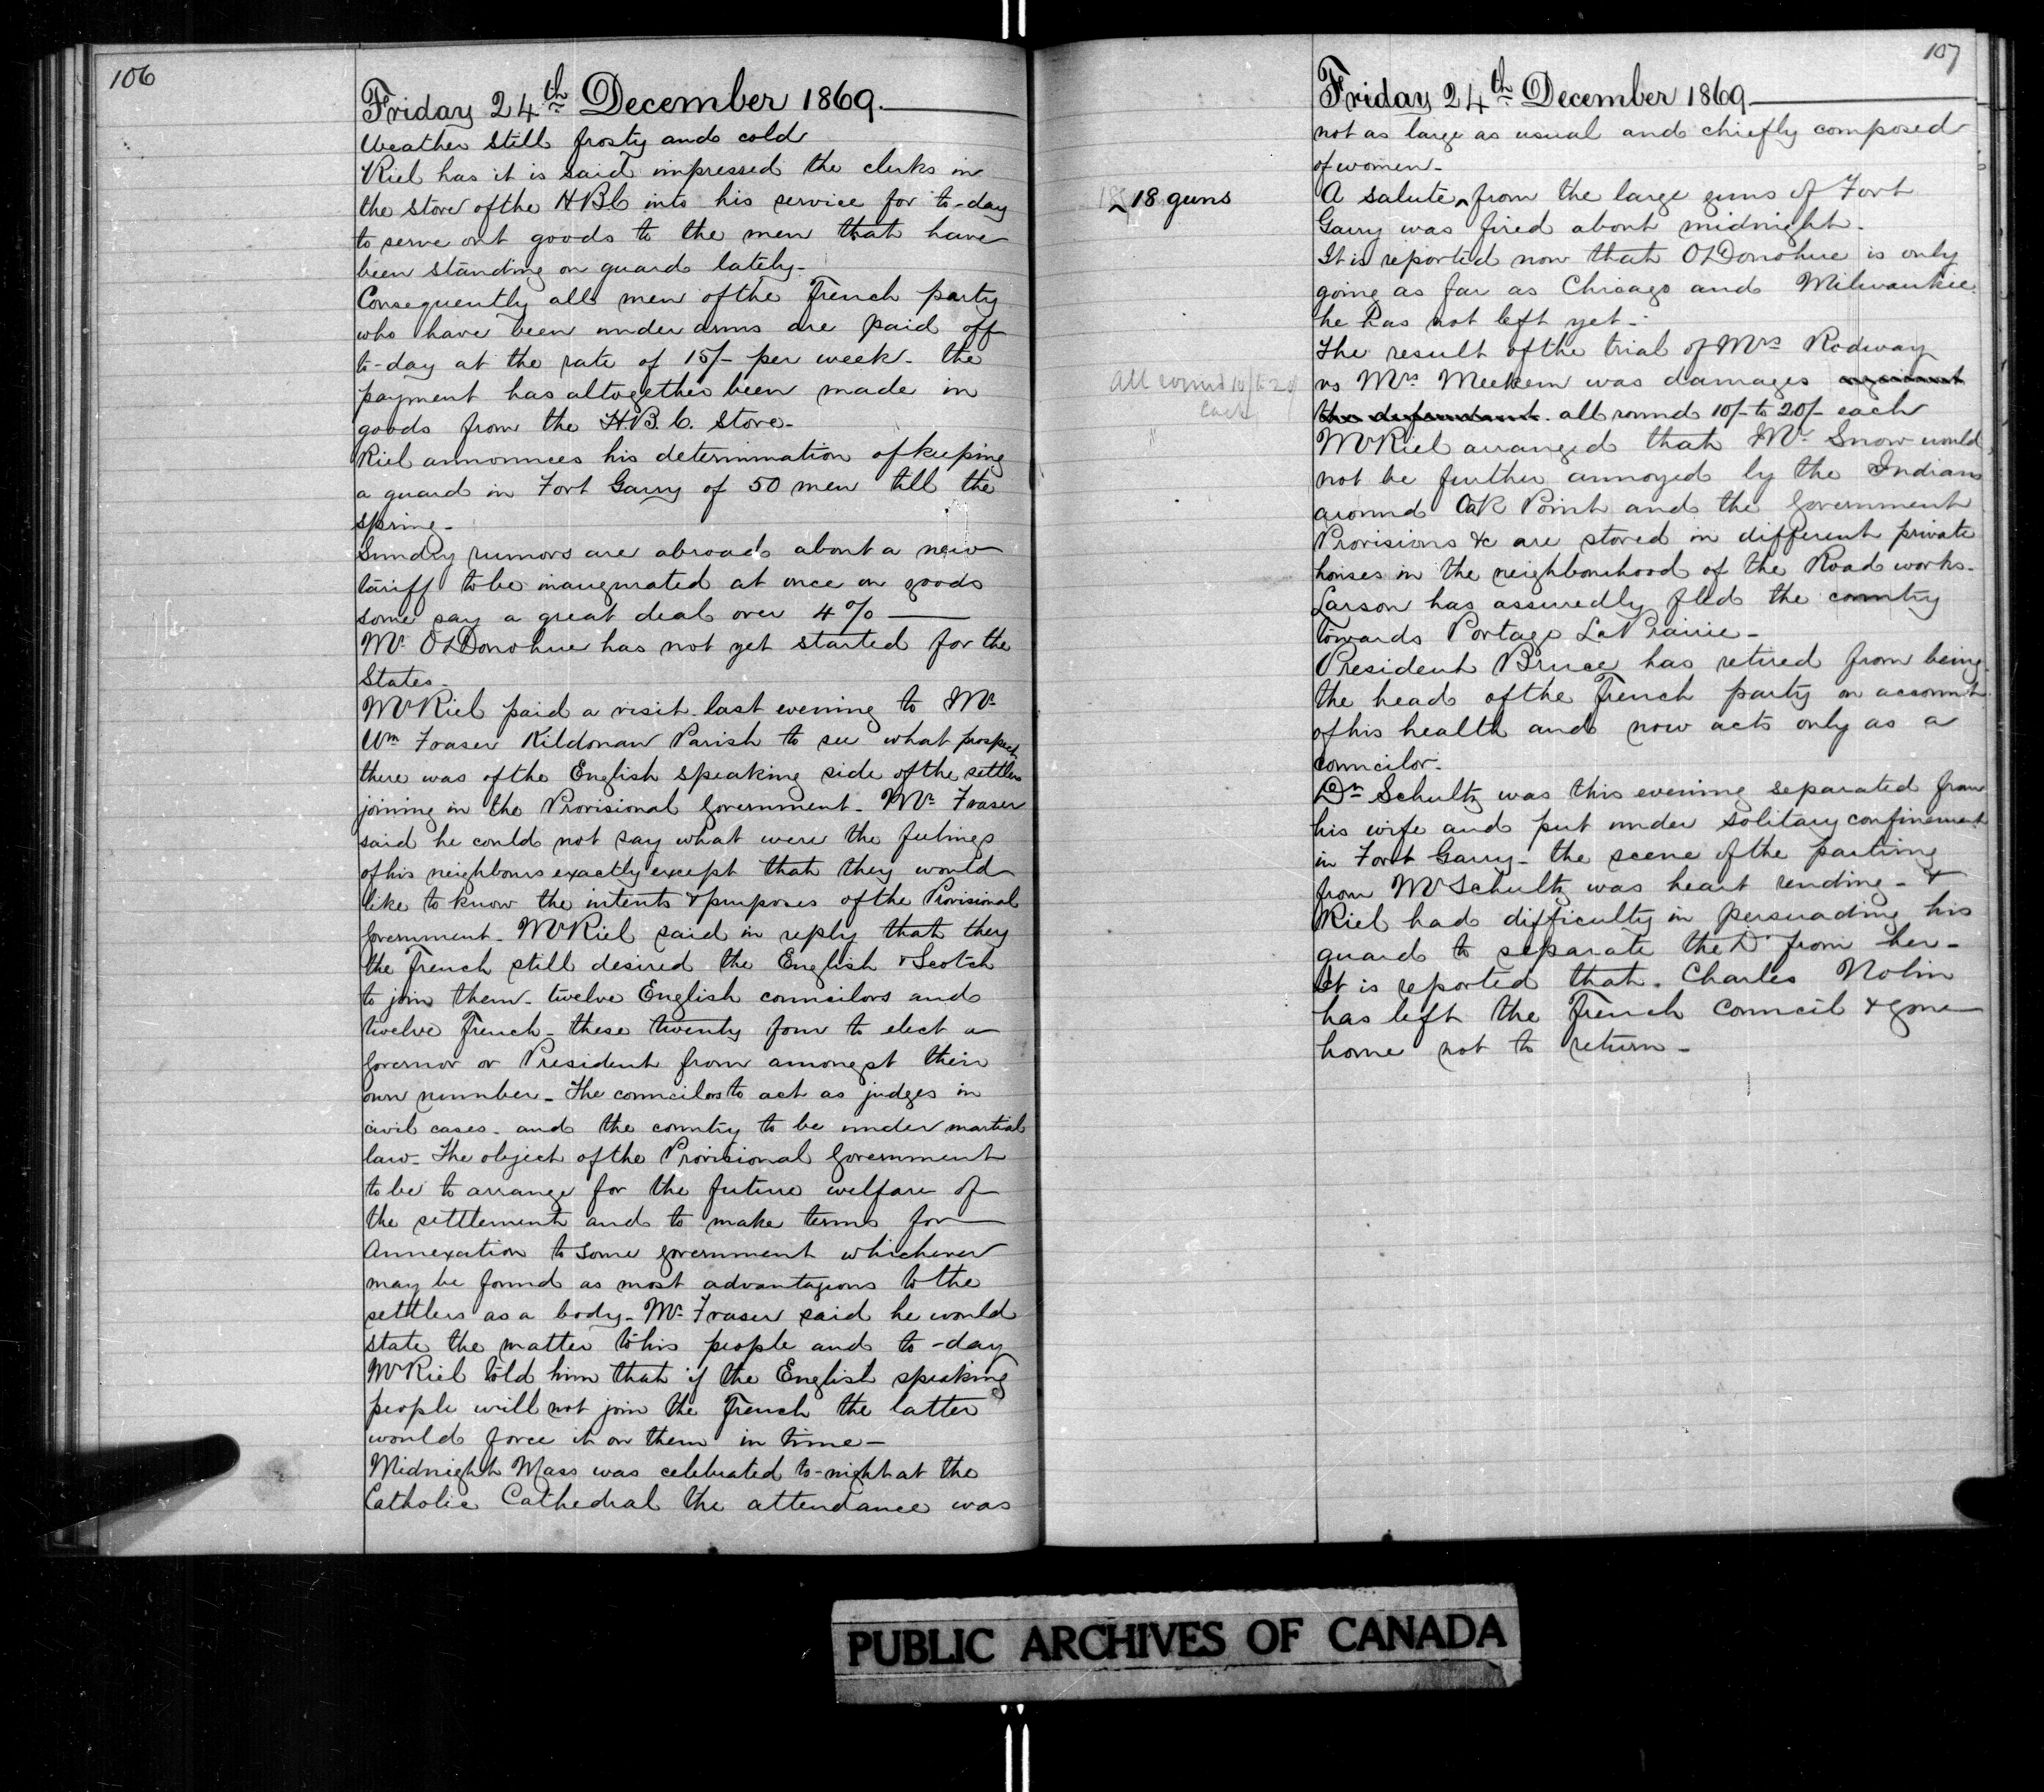 106
Friday 24th December 1869.
Weather still frosty and cold
Riel has it is said impressed the clerks in
the store of the HBC into his service for to-day
to serve out goods to the men that have
been standing on guard lately.
Consequently all men of the French party
who have been under arms are paid off
to-day at the rate of 15/- per week. the
payment has altogether been made in
goods from the H.B.C. Store.
Riel announces his determination of keeping
a guard in Fort Garry of 50 men till the
spring.
Sundry rumors are abroad about a new
tariff to be inaugurated at once on goods
some say a great deal over 4%
Mr O'Donohue has not yet started for the
States.
Mr Riel paid a visit last evening to Mr
Wm Fraser Kildonan Parish to see what prospect
there was of the English speaking side of the settlers
joining in the Provisional Government. Mr Fraser
said he could not say what were the feelings
of his neighbours exactly except that they would
like to know the intents & purposes of the Provisional
Government. Mr Riel said in reply that they
the French still desired the English & Scotch
to join them. twelve English councilors and
twelve French. these twenty four to elect a
Governor or President from amongst their
own number. The councilors to act as judges in
civil cases. and the country to be under martial
law. The object of the Provisional Government
to be to arrange for the future welfare of
the settlement and to make terms for
Annexation to some government whichever
may be found as most advantageous to the
settlers as a body. Mr Fraser said he would
state the matter to his people and to-day
Mr Riel told him that if the English speaking
people will not join the French the latter
would force it on them in time.
Midnight Mass was celebrated to-night at the
Catholic Cathedral the attendance was
107
Friday 24th December 1869
not as large as usual and chiefly composed
of women.
18 guns
A salute ^ from the large guns of Fort
Garry was fired about midnight.
It is reported now that O'Donohue is only
going as far as Chicago and Milwaukie.
he has not left yet.
The result of the trial of Mrs Rodway
All round 10/- to 20/
each
vs Mrs Meekem was damages against
the defendant. all round 10/- to 20/- each
Mr Riel arranged that Mr Snow would
not be further annoyed by the Indians
around Oak Point and the Government
Provisions &c are stored in different private
houses in the neighbourhood of the Road works.
Larson has assuredly fled the country
towards Portage La Prairie.
President Bruce has retired from being
the head of the French party on account
of his health and now acts only as a
councilor.
Dr Schultz was this evening separated from
his wife and put under solitary confinement
in Fort Garry. the scene of the parting
from Mr Schultz was heart rending. &
Riel had difficulty in persuading his
guard to separate the Dr from her.
It is reported that. Charles Nolin
has left the French Council & gone
home not to return.
PUBLIC ARCHIVES OF CANADA